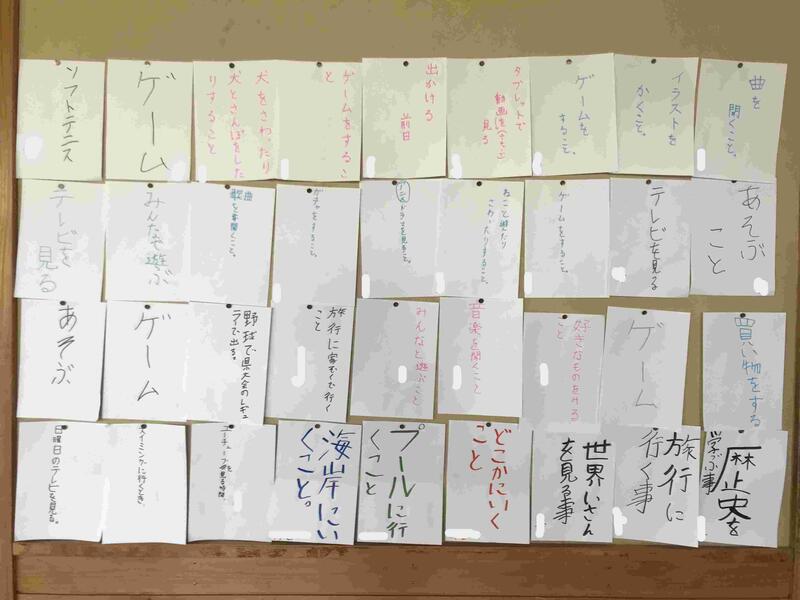 曲を
聞くこと。
イラストを
かくこと。
ゲームを
すること。
タブレットで
見る
出かける
前日
ゲームをするこ
と
犬をさわったり
犬とさんぽをした
りすること
ゲーム
ソフトテニス
あそぶ
こと
テレビを見る
ゲームをすること。
ねこと遊んだり
さわったりすること。
アニメドラマを見ること。
ガチャをすること。
曲
歌を聞くこと。
みんなで遊ぶ
テレビを
見る
買い物をする
ゲーム
好きなものを
こと
音楽を聞くこと
みんなと遊ぶこと
旅行に家ぞくで行く
こと
野球で県大会のレギュ
ラーで出る。
ゲーム
あそぶ
歴史を
学ぶ事
旅行に
行く事
世界いさん
を見る事
どこかにいく
こと
プールに行
くこと
海岸にい
くこと。
見る時間。
スイミングに行くとき。
日曜日のテレビを見る。